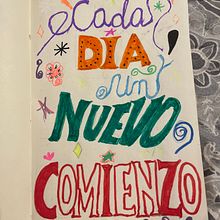 Cada
DIA
un
NUEVO
COMIENZO